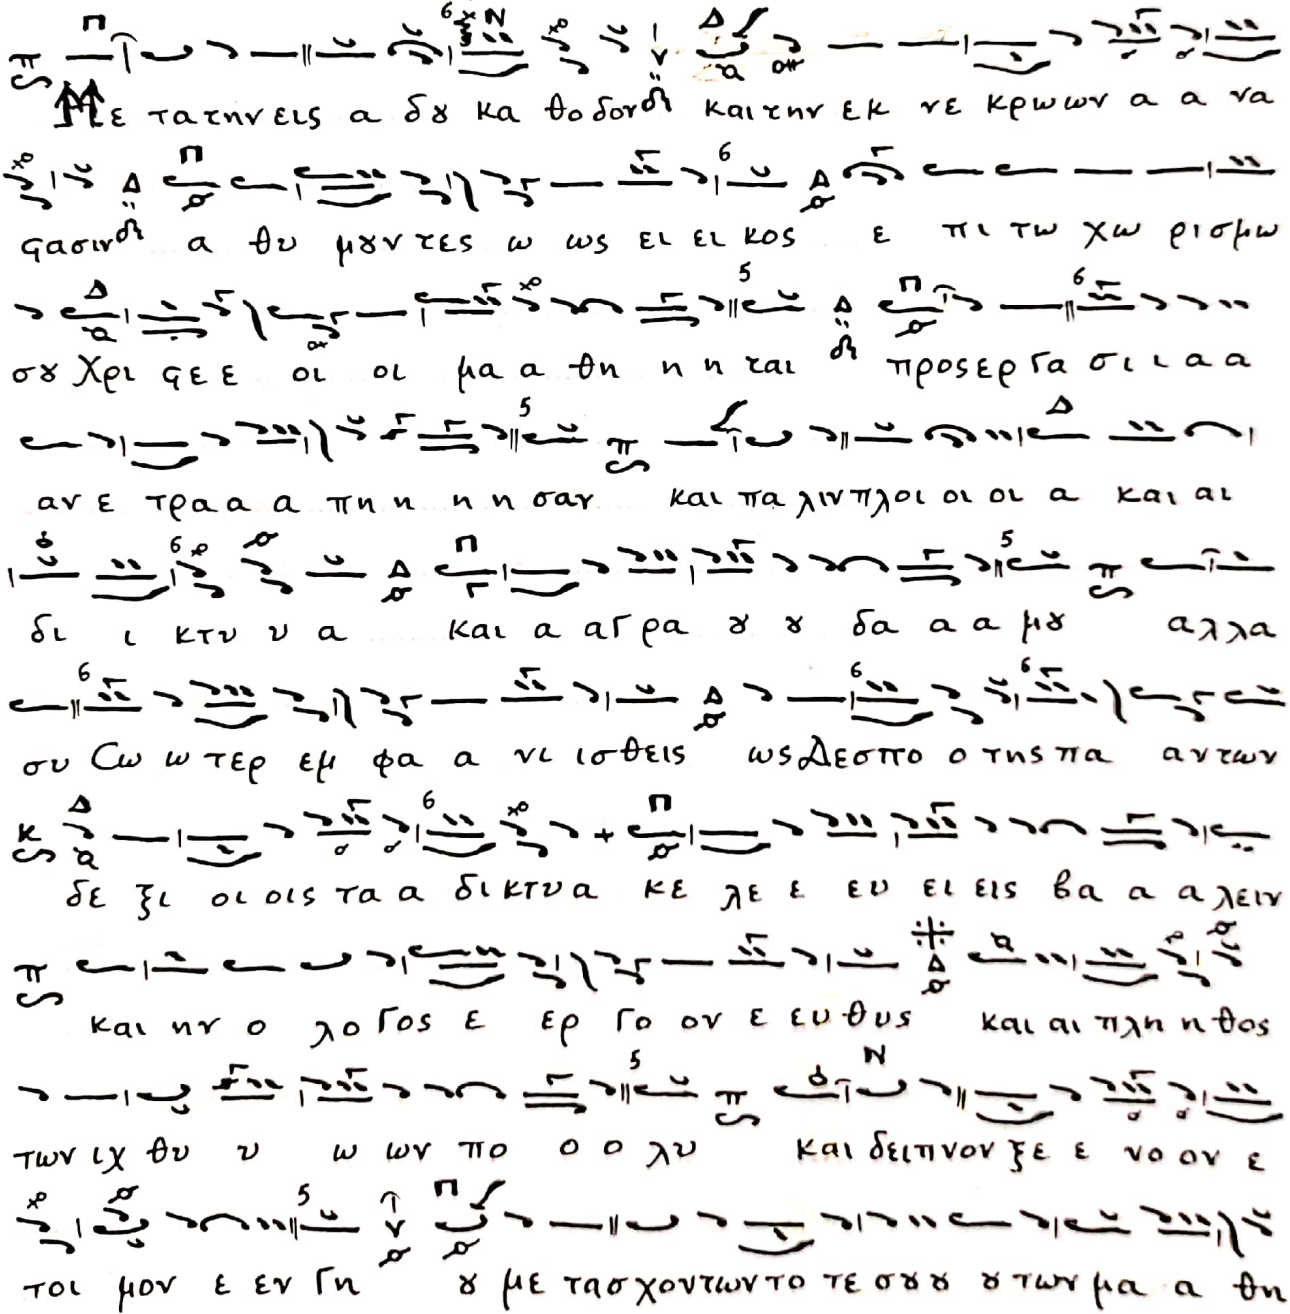 Με τα την εις α δȣ κα θο δον και την εκ νε κρω ων α α να
ϛασιν α θυ μȣν τες ω ως ει ει κος ε πι τω χω ρι σμω
σȣ Χρι ϛε ε οι οι μα α θη η η ται προς ερ γα σι ι α α
αν ε τρα α α πη η η η σαν και πα λιν πλοι οι οι α και αι
δι ι κτυ υ α και α α γρα ȣ ȣ δα α α μȣ αλλα
συ Σω ω τερ εμ φα α νι ισθεις ως Δεσπο ο της πα αν των
δε ξι οι οις τα α δι κτυ α κε λε ε ευ ει εις βα α α λειν
και ην ο λο γος ε ερ γο ον ε ευ θυς και αι πλη η θος
των ιχ θυ υ ω ων πο ο ο λυ και δειπνον ξε ε νο ον ε
τοι μον ε εν γη ȣ με τα σχον των το τε σȣ ȣ ȣ των μα α θη